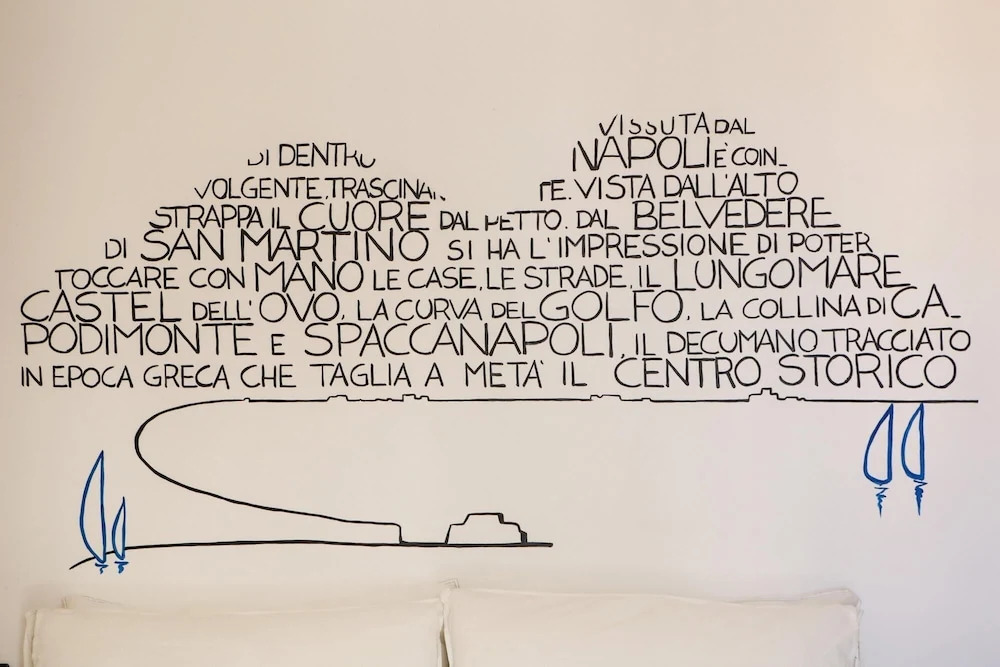 VISSUTA DAL
DI DENTRO NAPOLI È COIN_
VOLGENTE, TRASCINAN TE. VISTA DALL'ALTO
STRAPPA IL CUORE DAL PETTO. DAL BELVEDERE
DI SAN MARTINO SI HA L'IMPRESSIONE DI POTER
TOCCARE CON MANO LE CASE, LE STRADE, IL LUNGOMARE
CASTEL DELL'OVO, LA CURVA DEL GOLFO, LA COLLINA DI CA_
PODIMONTE E SPACCANAPOLI, IL DECUMANO TRACCIATO
IN EPOCA GRECA CHE TAGLIA A METÀ IL CENTRO STORICO